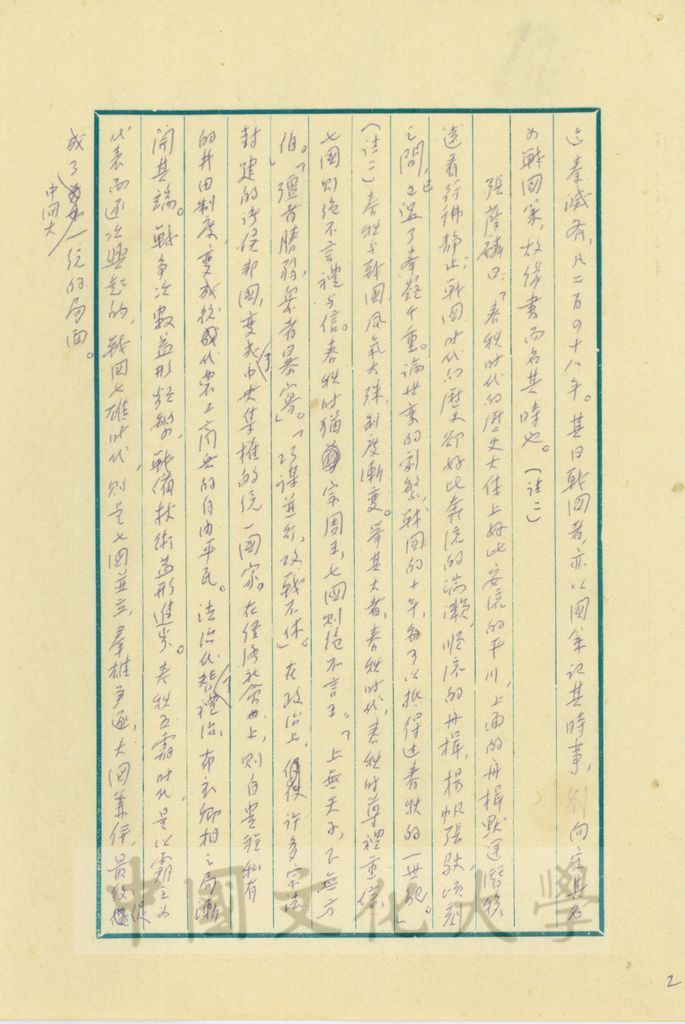 迄秦滅齊，凡二百四十八年。其曰戰國者，亦以國策記其時事，劉向定其名
為戰國策，故緣書而名其時也。（註一）
張蔭麟曰：「春秋時代的歷史大體上好比安流的平川，上面的舟楫默運潛移，
遠看行彿靜止；戰國時代的歷史卻好比奔流的湍瀨，順流的舟楫，揚帆張駛，頃刻
之間，已過了峯巒千重。論世變的劇繁，戰國的十年，每可以抵得過春秋的一世紀。」
（註二）春秋與戰國風氣大殊，制度漸變。舉其大者，春秋時代，春秋時尊禮重信，
七國則絕不言禮與信。春秋時猶宗周王，七國則絕不言王。「上無天子，下無方
伯。」「彊者勝弱，眾者暴寡。」「巧謀並行，攻戰不休」。在政治上，許多宗法
封建的諸侯邦國，變成了中央集權的統一國家。在經濟社會上，則自貴族私有
的井田制度，變成後代農工商兵的自由平民。法治代替了禮治，布衣卿相之局漸
開其端。戰爭次數益形頻繁，戰備技術益形進步。春秋五霸時代，是以霸主為
代表而遞次興起的，戰國七雄時代，則是七國並立，羣雄爭逐，大國兼併，最後促
成了中國大一統的局面。
2
中國文化大學